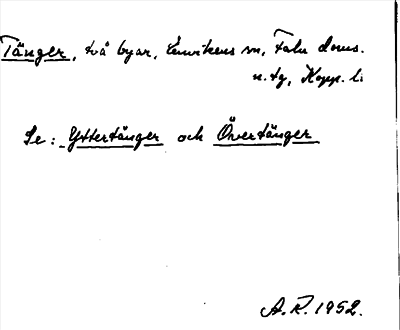 Tänger, två byar, Envikens sn, Falu doms.
n. tg, Kopp. l.
Se: Yttertänger och Övertänger
A.R. 1952.